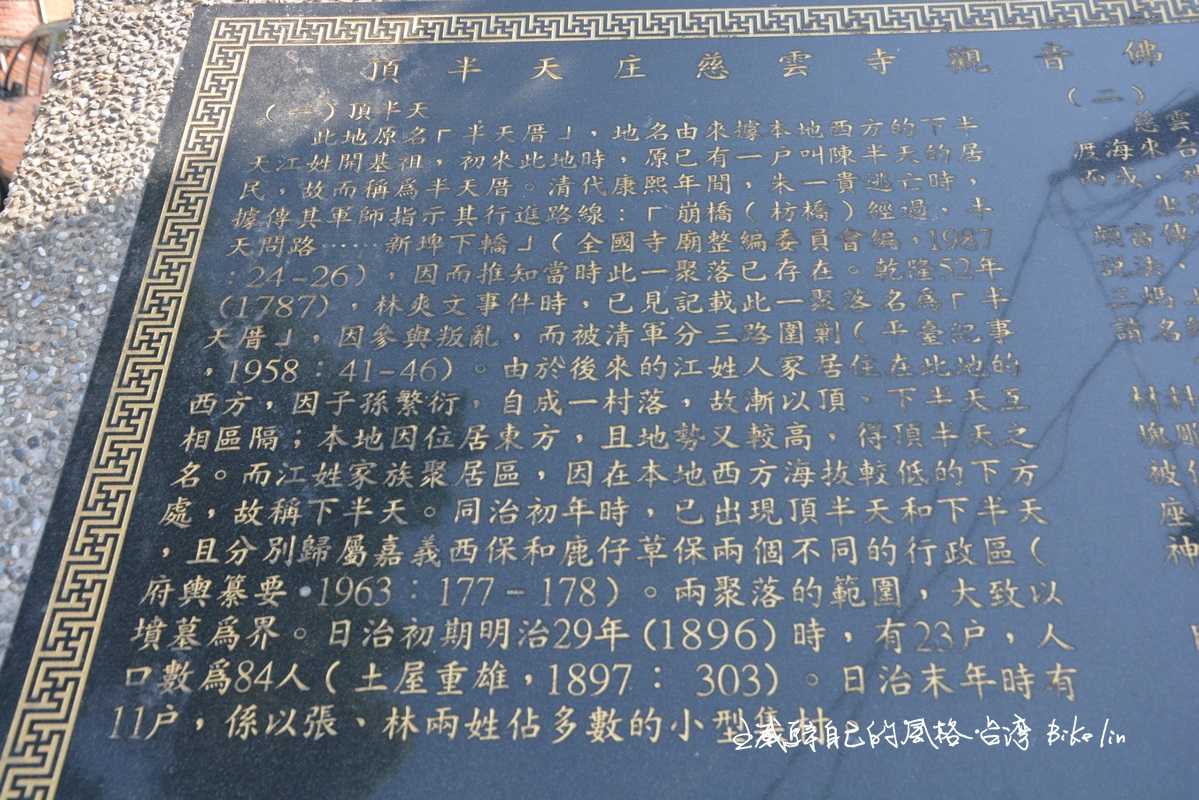 頂半天庄慈雲寺觀音佛
（一）頂半天
此地原名「半天厝」，地名由來據本地西方的下半
天江姓開基祖，初來此地時，原已有一户叫陳半天的居
民，故而稱爲半天厝。清代康熙年間，朱一貴逃亡時，
據傳其軍師指示其行進路線：「崩橋（枋橋）經過，半
天問路……新埤下轎」（全國寺廟整編委員會編，1987
：24-26），因而推知當時此一聚落已存在。乾隆52年
(1787)，林爽文事件時，已見記載此一聚落名爲「半
天厝」，因參與叛亂，而被清軍分三路圍剿（平臺紀事
，1958：41-46）。由於後來的江姓人家居住在此地的
西方，因子孫繁衍，自成一村落，故漸以頂、下半天互
相區隔；本地因位居東方，且地勢又較高，得頂半天之
名。而江姓家族聚居區，因在本地西方海拔較低的下方
處，故稱下半天。同治初年時，已出現頂半天和下半天
，且分別歸屬嘉義西保和鹿仔草保兩個不同的行政區（
府輿纂要，1963：177-178）。兩聚落的範圍，大致以
墳墓爲界。日治初期明治29年(1896)時，有23户，人
口數爲84人（土屋重雄，1897：303）。日治末年時有
11户，係以張、林兩姓佔多數的小型集村
（二）
慈雲
渡海來台
而成，
坐
頗富傳
說法，
三媽
請名
林村
塊雕
被
座
神
自己的風格·台湾 Bike lin